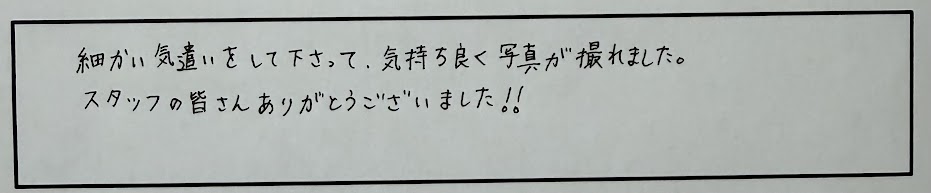 細かい気遣いをして下さって、気持ち良く写真が撮れました。
スタッフの皆さんありがとうございました!!